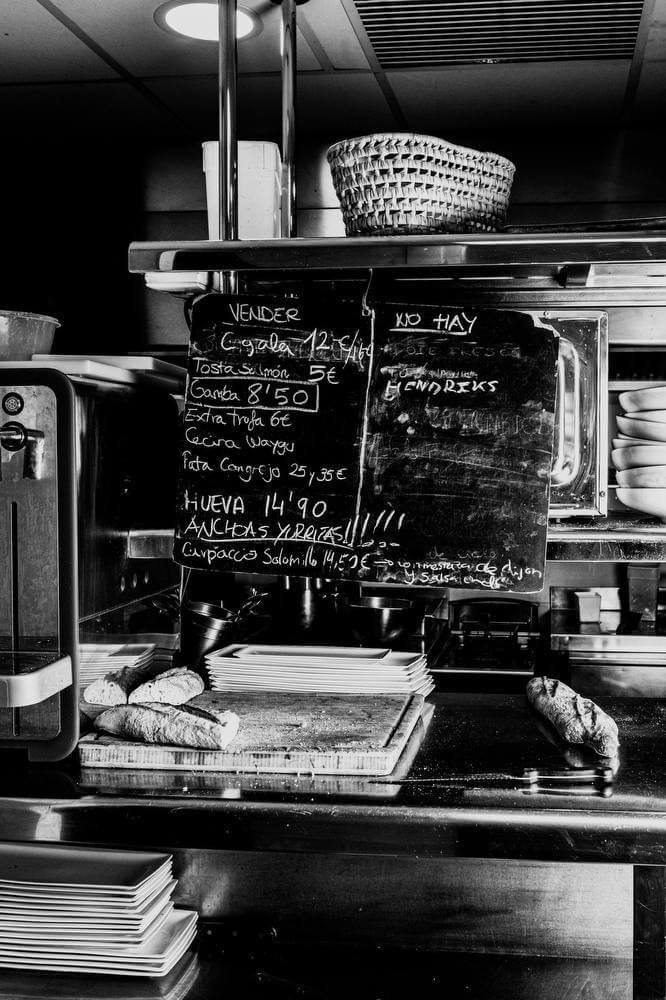 VENDER
Cigala 12€/16€
Tosta Salmón 5€
Gamba 8'50
Extra trufa 6€
Cecina Waygu
Pata Cangrejo 25 y 35€
HUEVA 14'90
ANCHOAS YURRITAS!!!!!!
Carpaccio Solomillo 14,50€ → con mostaza de dijon
y salsa
NO HAY
HENDRIKS